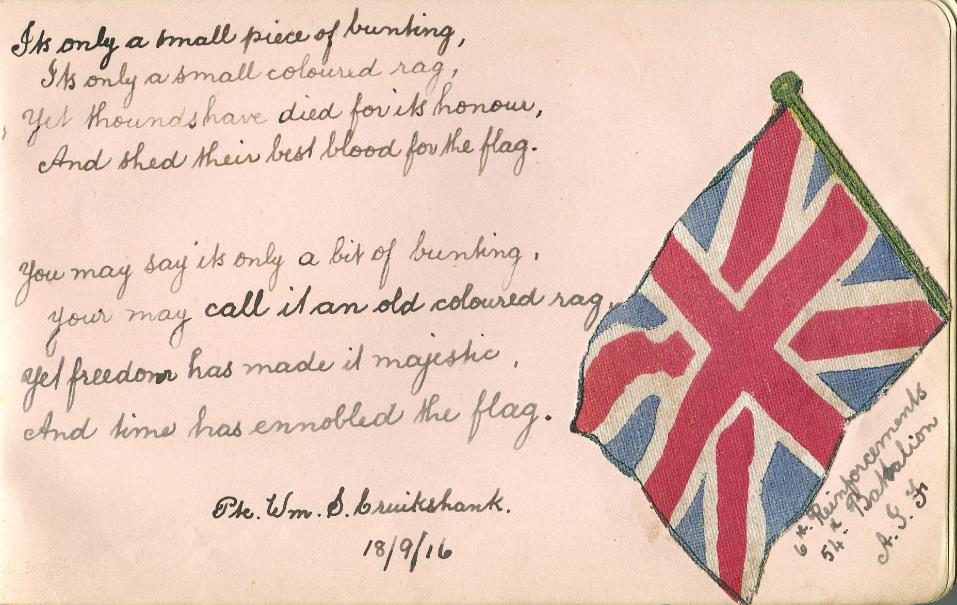 Its only a small piece of bunting,
Its only a small coloured rag,
Yet thounds have died for its honour,
And shed their best blood for the flag.
You may say its only a bit of bunting,
Your may call it an old coloured rag,
Yet freedom has made it majestic,
And time has ennobled the flag.
Pte. Wm. S. Cruikshank.
18/9/16
6th. Reinforcements
54th Battalion
A. I. F